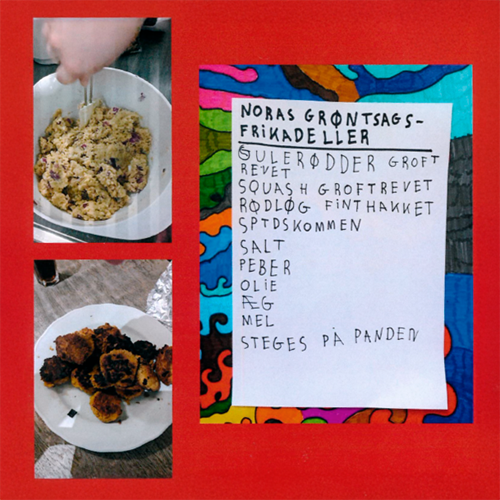 NORAS GRØNTSAGS-
FRIKADELLER
GULERØDDER GROFT
REVET
SQUASH GROFTREVET
RØDLØG FINTHAKKET
SPTDSKOMMEN
SALT
PEBER
OLIE
ÆG
MEL
STEGES PÅ PANDEN